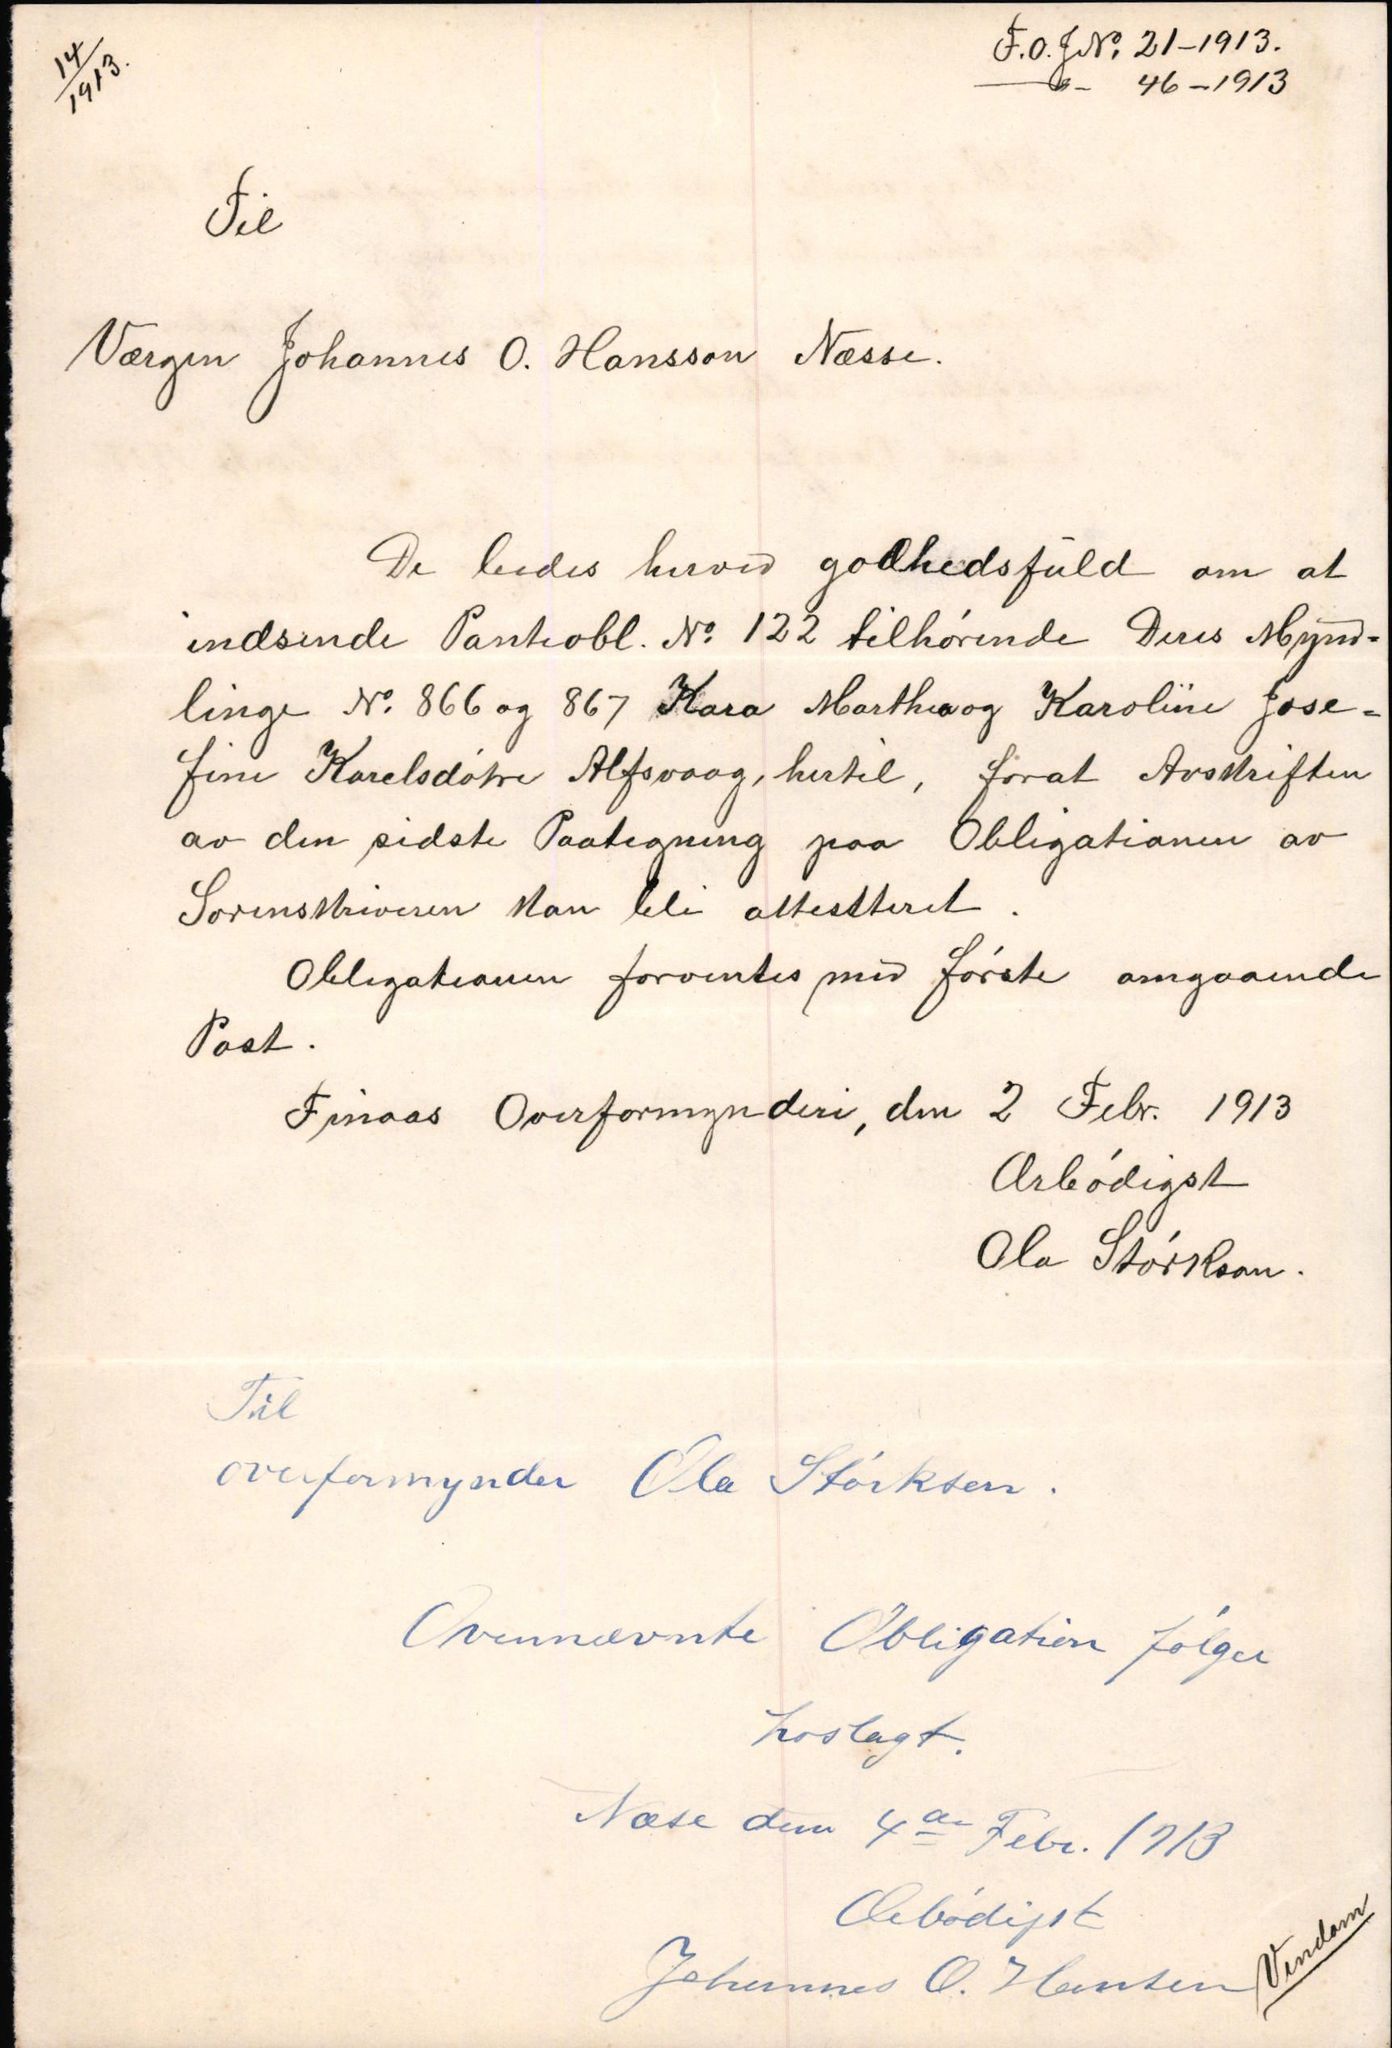 14/1913.
F.O.JNo. 21-1913.
-"- 46-1913
Til
Værgen Johannes O. Hansson Næsse.
De bedes herved godhedsfuld om at
indsende Panteobl. No. 122 tilhørende Deres Mynd-
linge No. 866 og 867 Kara Marthea og Karoline Jose-
fine Karelsdøtre Alfsvaag, hertil, forat Avskriften
av den sidste Paategning paa Obligationen av
Sorenskriveren kan bli attesteret.
Obligationen forventes med første omgaaende
Post.
Finaas Overformynderi, den 2 Febr. 1913
Ærbødigst
Ola Størkson.
Til
overformynder Ola Størksen.
Ovennævnte Obligation følger
hoslagt.
Næse den 4de Febr. 1913
Ærbødigst
Johannes O. Hansen
Vendom